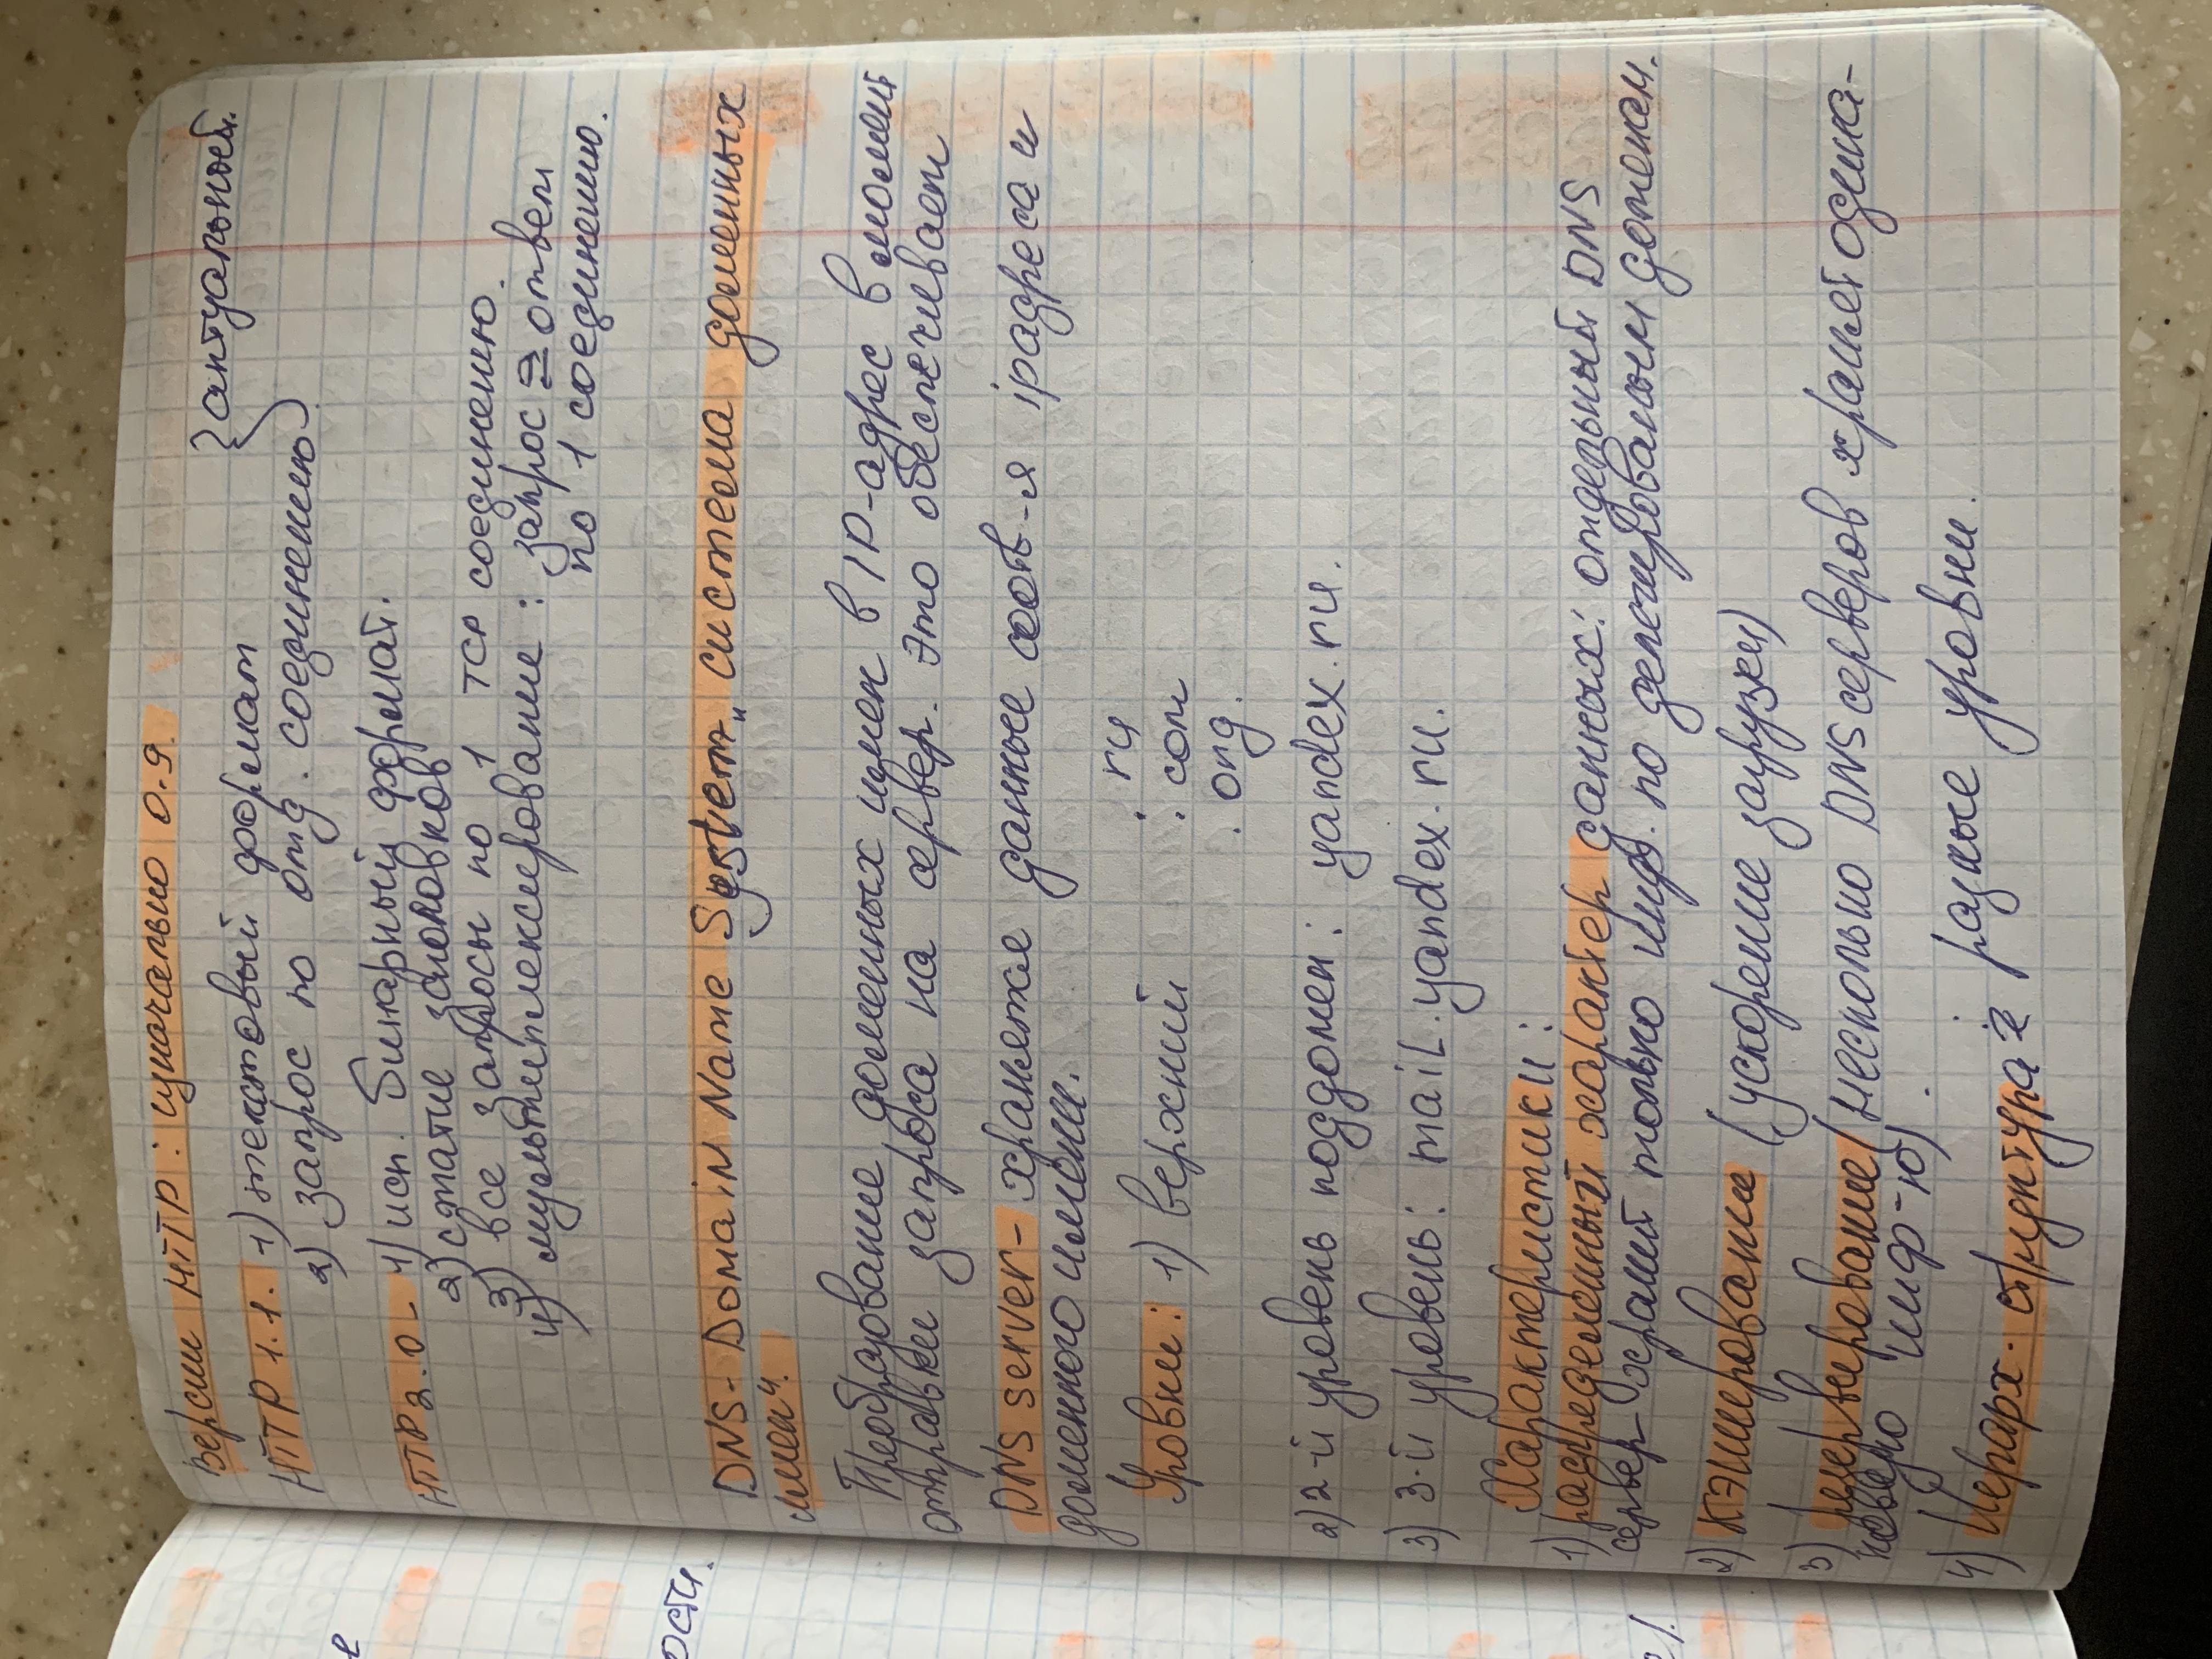 Версии HTTP: изначально 0.9.
} актуальный.
HTTP 1.1. 1) текстовый формат
2) запрос по отд. соединению.
HTTP 2.0 - 1) исп. бинарный формат.
2) сжатие заголовков
3) все запросы по 1 TCP соединению.
4) мультиплексирование: запрос ⇄ ответ
по 1 соединению.
DNS - Domain Name System „система доменных
имен“.
Преобразование доменных имен в IP-адрес в момент
отправки запроса на сервер. Это обеспечивает
DNS server - хранятся данные соотв-я ip адреса и
доменного имени.
Уровни: 1) верхний .ru
.com
.org.
2) 2-й уровень поддомен: yandex.ru.
3) 3-й уровень: mail.yandex.ru.
Характеристики:
1) распределенный характер данных: отдельный DNS
сервер хранит только инф. по делегированым доменам.
2) Кэширование (ускорение загрузки)
3) резервирование (несколько DNS серверов хранят одина-
ковую инф-ю).
4) Иерарх. структура: разные уровни.
ости.